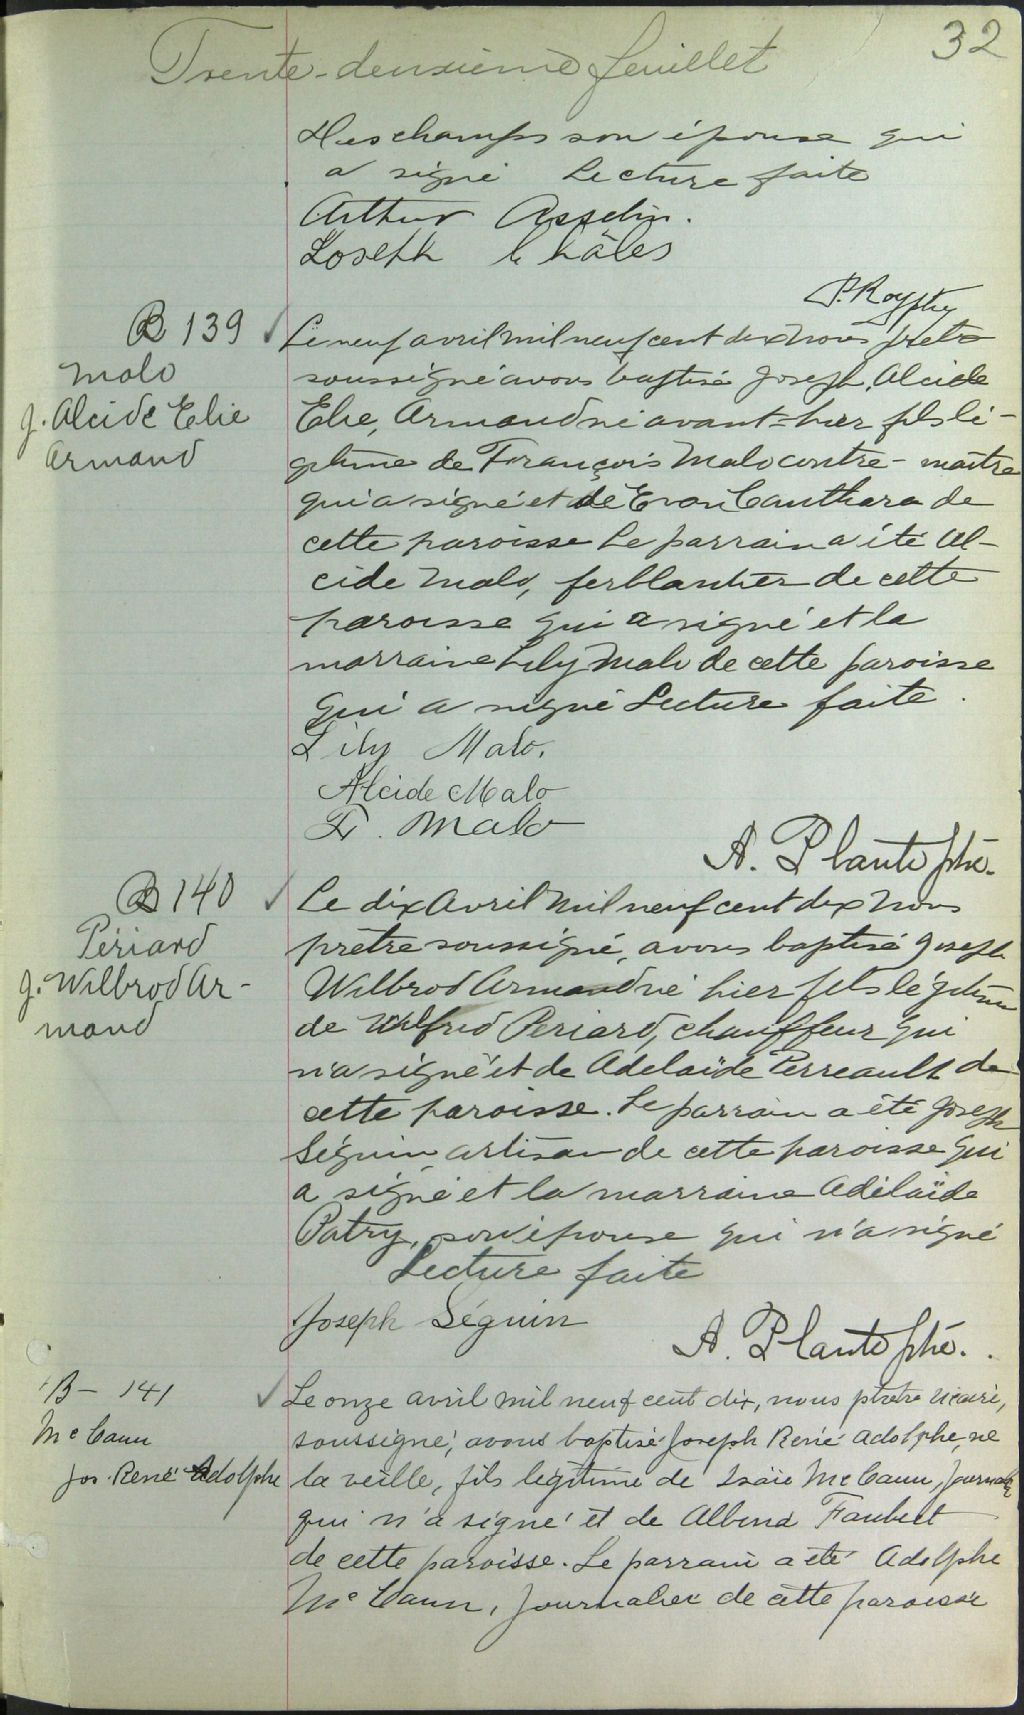 32
Trente-deuxième feuillet
Deschamps son épouse qui
a signé Lecture faite
Arthur Asselin.
Joseph
P. Roy ptre
B 139
Malo
J. Alcide Elie
Armand
Le neuf avril mil neuf cent dix nous prêtre
soussigné avons baptisé Joseph, Alcide
Elie, Armand né avant-hier fils lé-
gitime de François Malo contre-maître
qui a signé et de Eva Cauthara de
cette paroisse Le parrain a été Al-
cide Malo, ferblantier de cette
paroisse qui a signé et la
marraine Lily Malo de cette paroisse
qui a signé Lecture faite.
Lily Malo.
Alcide Malo
F. Malo
A. Plante ptre.
B 140
Périard
J. Wilbrod Ar-
mand
Le dix Avril mil neuf cent dix nous
prêtre soussigné, avons baptisé Joseph
Wilbrod Armand né hier fils légitime
de Wilfrid Périard, chauffeur qui
n'a signé et de Adelaïde Perreault de
cette paroisse. Le parrain a été Joseph
Séguin artisan de cette paroisse qui
a signé et la marraine Adélaïde
Patry, son épouse qui n'a signé
Lecture faite
Joseph Séguin
A. Plante ptre.
B - 141
McCann
Jos. René Adolphe
Le onze avril mil neuf cent dix, nous prêtre vicaire,
soussigné, avons baptisé Joseph René Adolphe, né
la veille, fils légitime de Isaïe McCann, journalier
qui n'a signé et de Albina Faubert
de cette paroisse. Le parrain a été Adolphe
McCann, journalier de cette paroisse